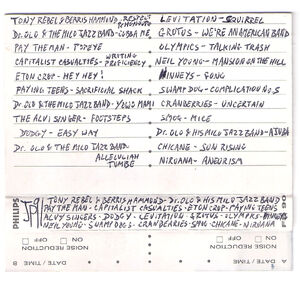 TONY REBEL & BERRIS HAMMOND - RESPECT
DR. OLO & THE MILO JAZZ BAND - COBBA ME,
PAY THE MAN - POPEYE
CAPITALIST CASUALTIES - WRITING PROFICIENCY
ETON CROP - HEY HEY!
PAYING TEENS - SACRIFICIAL SHACK
DR. OLO & THE MILO JAZZ BAND - YOWO MAMI
THE ALVI SINGER - FOOTSTEPS
DODGY - EASY WAY
DR. OLO & THE MILO JAZZ BAND - ALLELUIAH TUMBE
LEVITATION - SQUIRREL
GROTUS - WE'RE AN AMERICAN BAND
OLYMPICS - TALKING TRASH
NEIL YOUNG - MANSION ON THE HILL
MINNEYS - GONG
SWAMP DOG - COMPLICATION NO. 5
CRANBERRIES - UNCERTAIN
SMOG - MICE
DR. OLO & HIS MILO JAZZ BAND -
CHICANE - SUN RISING
NIRVANA - ANEURISM
PHILIPS
JP91
TONY REBEL & BERRIS HAMMOND - DR. OLO & HIS MILO JAZZ BAND
PAY THE MAN - CAPITALIST CASUALTIES - ETON CROP - PAYING TEENS
ALVY SINGERS - DODGY - LEVITATION - GROTUS - OLYMPICS -
NEIL YOUNG - SWAMP DOGG - CRANBERRIES - SMOG - CHICANE - NIRVANA
90
ON OFF
NOISE REDUCTION
B DATE / TIME
ON OFF
NOISE REDUCTION
A DATE / TIME